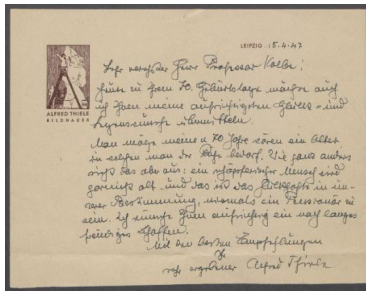 LEIPZIG 15.4.47
ALFRED THIELE
BILDHAUER
Sehr verehrter Herr Professor Kolbe!
Heute zu Ihrem 70. Geburtstage möchte auch
ich Ihnen meine aufrichtigsten Glück- und
Segenswünsche übermitteln.
Man möge meinen 70 Jahre wären ein Alter
in welchem man der Ruhe bedarf. Wie ganz anders
sieht das aber aus: ein schöpferischer Mensch wird
garnicht alt und das ist das in un-
serer Bestimmung, niemals ein Pensionär zu
sein. Ich wünsche Ihnen aufrichtig ein noch langes
freudiges Schaffen.
Mit den besten Empfehlungen
Ihr
sehr ergebener Alfred Thiele